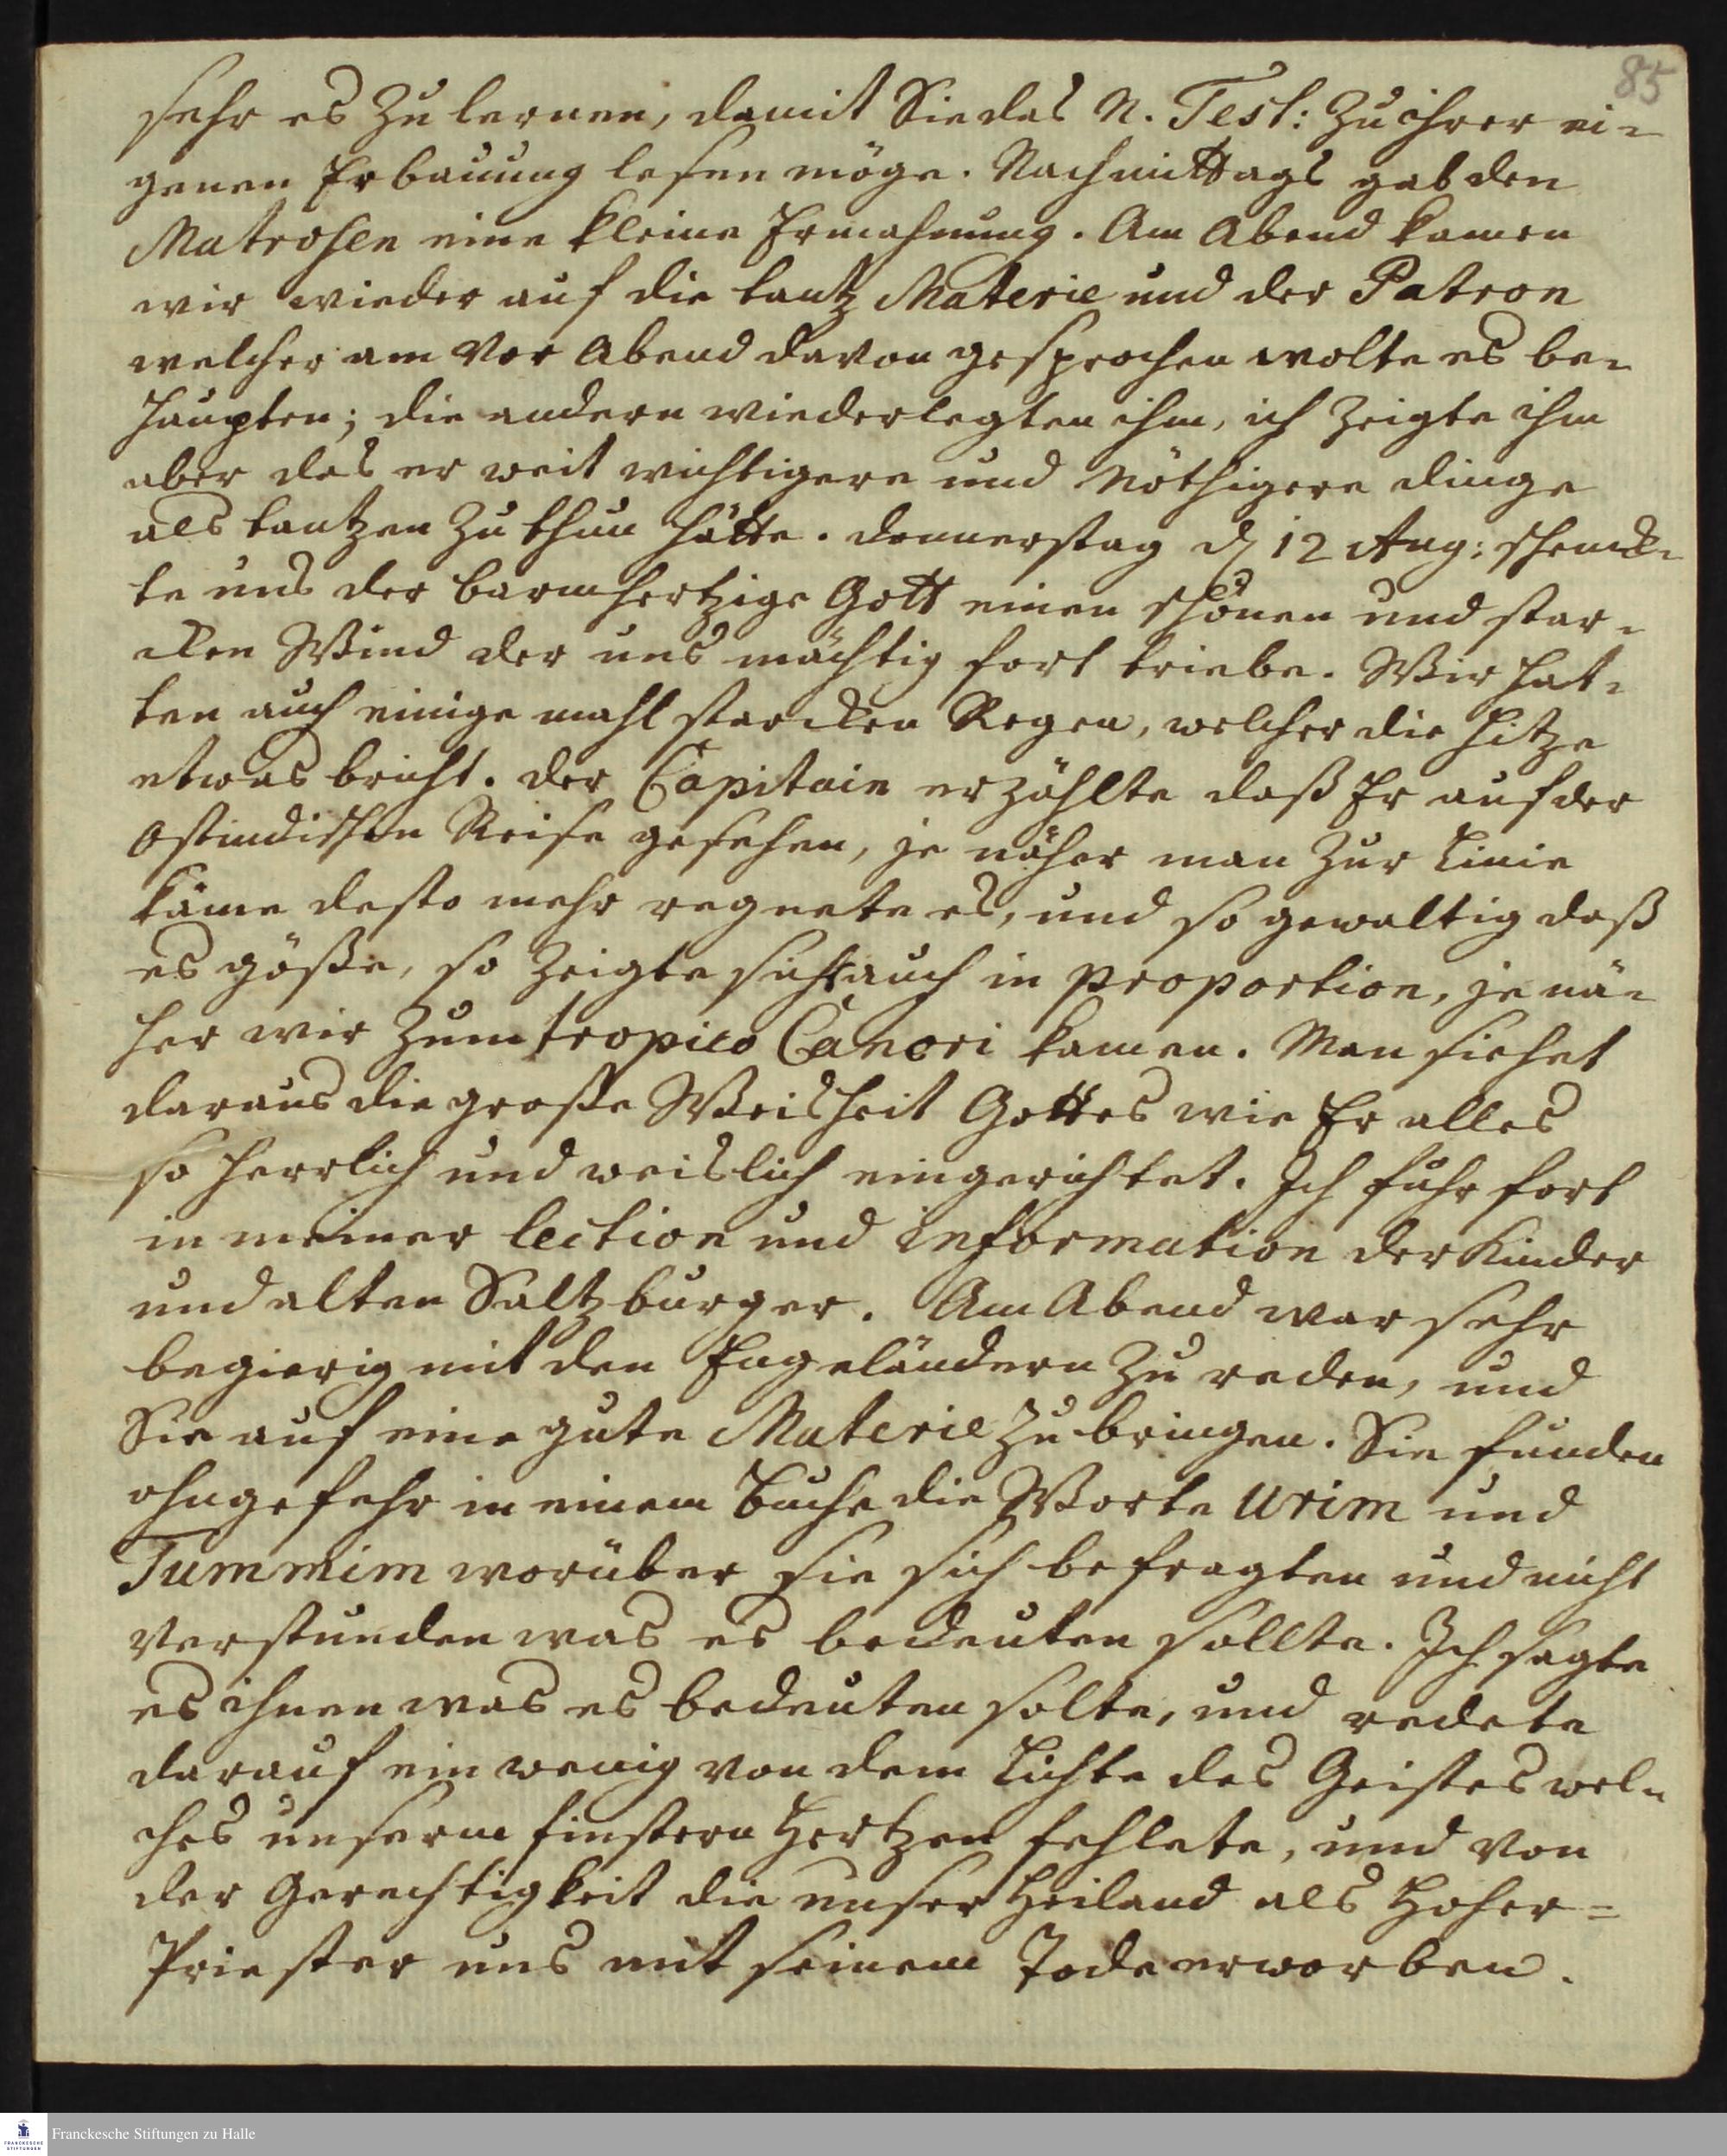 85
sehr es zu lernen, damit Sie das N. Test: zu ihrer ei-
genen Erbauung lesen möge. Nachmittags gab den
Matrosen eine kleine Ermahnung. Am Abend kamen
wir wieder auf die tantz Materie und der Patron
welcher am Vor Abend davon gesprochen wolte es be-
haupten; die andern wiederlegten ihm, ich zeigte ihm
aber das er weit wichtigere und nöthigere dinge
als tantzen zu thun hätte. Donnerstag d 12 Aug: schenck-
te uns der barmhertzige Gott einen schönen und star-
cken Wind der uns mächtig fort triebe. Wir hat-
ten auch einige mahl starcken Regen, welcher die Hitze
etwas bricht. der Capitain erzählte daß Er auf der
Ostindischen Reise gesehen, je näher man zur Linie
käme desto mehr regnete es, und so gewaltig daß
es göße, so zeigte sichs auch in proportion, je nä-
her wir zum tropico Cancri kamen. Man siehet
daraus die große Weisheit Gottes wie Er alles
so herrlich und weislich eingerichtet. Ich fuhr fort
in meiner lection und information der Kinder
und alten Saltzburger. Am Abend war sehr
begierig mit den Engeländern zu reden, und
Sie auf eine gute Materie zu bringen. Sie funden
ohngefehr in einem Buche die Worte Urim und
Tummim worüber sie sich befragten und nicht
verstunden was es bedeuten sollte. Ich sagte
es ihnen was es bedeuten solte, und redete
darauf ein wenig von dem Lichte des Geistes wel-
ches unserm finstern Hertzen fehlete, und von
der Gerechtigkeit die unser Heiland als Hoher-
Priester uns mit seinem Tode erworben.
Franckesche Stiftungen zu Halle